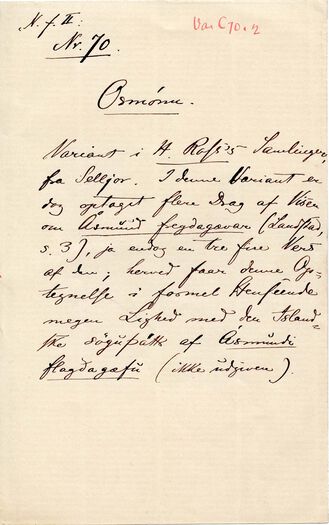 N. f. II: Var C 70. 2
Nr. 70.
Osmónn.
Variant i H. Ross's Samlinger,
fra Seljor. I denne Variant er
dog optaget flere Drag af Visen
om Åsmund fregdagævar (Landstad,
s. 3), ja endog en tre fire Vers
af den; herved faar denne Op-
tegnelse i formel Henseende
megen Lighed med den Island-
ske söguþátt af Ásmundi
flagðagæfu (ikke udgiven).